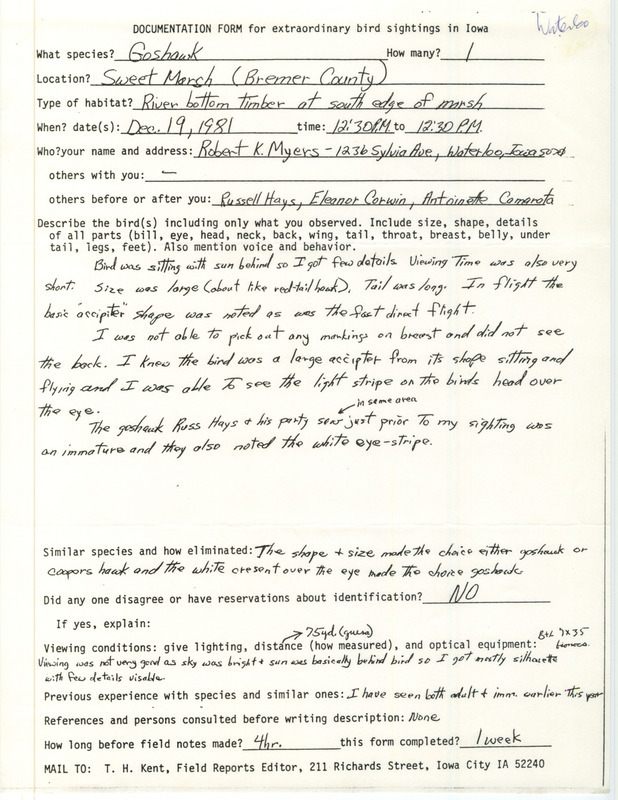 Waterloo
DOCUMENTATION FORM for extraordinary bird sightings in Iowa
What species? Goshawk How many? 1
Location? Sweet Marsh (Bremer County)
Type of habitat? River bottom timber at south edge of marsh
When? date(s): Dec. 19, 1981 time: 12:30 P.M. to 12:30 P.M.
Who?your name and address: Robert K. Myers - 1236 Sylvia Ave, Waterloo, Iowa
others with you: —
others before or after you: Russell Hays, Eleanor Corwin, Antoinette Camarata
Describe the bird(s) including only what you observed. Include size, shape, details
of all parts (bill, eye, head, neck, back, wing, tail, throat, breast, belly, under
tail, legs, feet). Also mention voice and behavior.
Bird was sitting with sun behind so I got few details. Viewing Time was also very
short. Size was large (about like red-tail hawk), Tail was long. In flight the
basic "accipiter" shape was noted as was the fast direct flight.
I was not able to pick out any markings on breast and did not see
the back. I knew the bird was a large accipter from its shape sitting and
flying and I was able to see the light stripe on the birds head over
the eye.
in same area
The goshawk Russ Hays + his party saw just prior to my sighting was
an immature and they also noted the white eye-stripe.
Similar species and how eliminated: The shape + size made the choice either goshawk or
coopors hawk and the white cresent over the eye made the choice goshawk
Did any one disagree or have reservations about identification? NO
If yes, explain:
75yd. (guess)
Viewing conditions: give lighting, distance (how measured), and optical equipment: B+L 7x35
Viewing was not very good as sky was bright + sun was basically behind bird so I got mostly silhouette
with few details visable.
Previous experience with species and similar ones: I have seen both adult + imm. earlier this year
References and persons consulted before writing description: None
How long before field notes made? 4hr. this form completed? 1 week
MAIL TO: T. H. Kent, Field Reports Editor, 211 Richards Street, Iowa City IA 52240